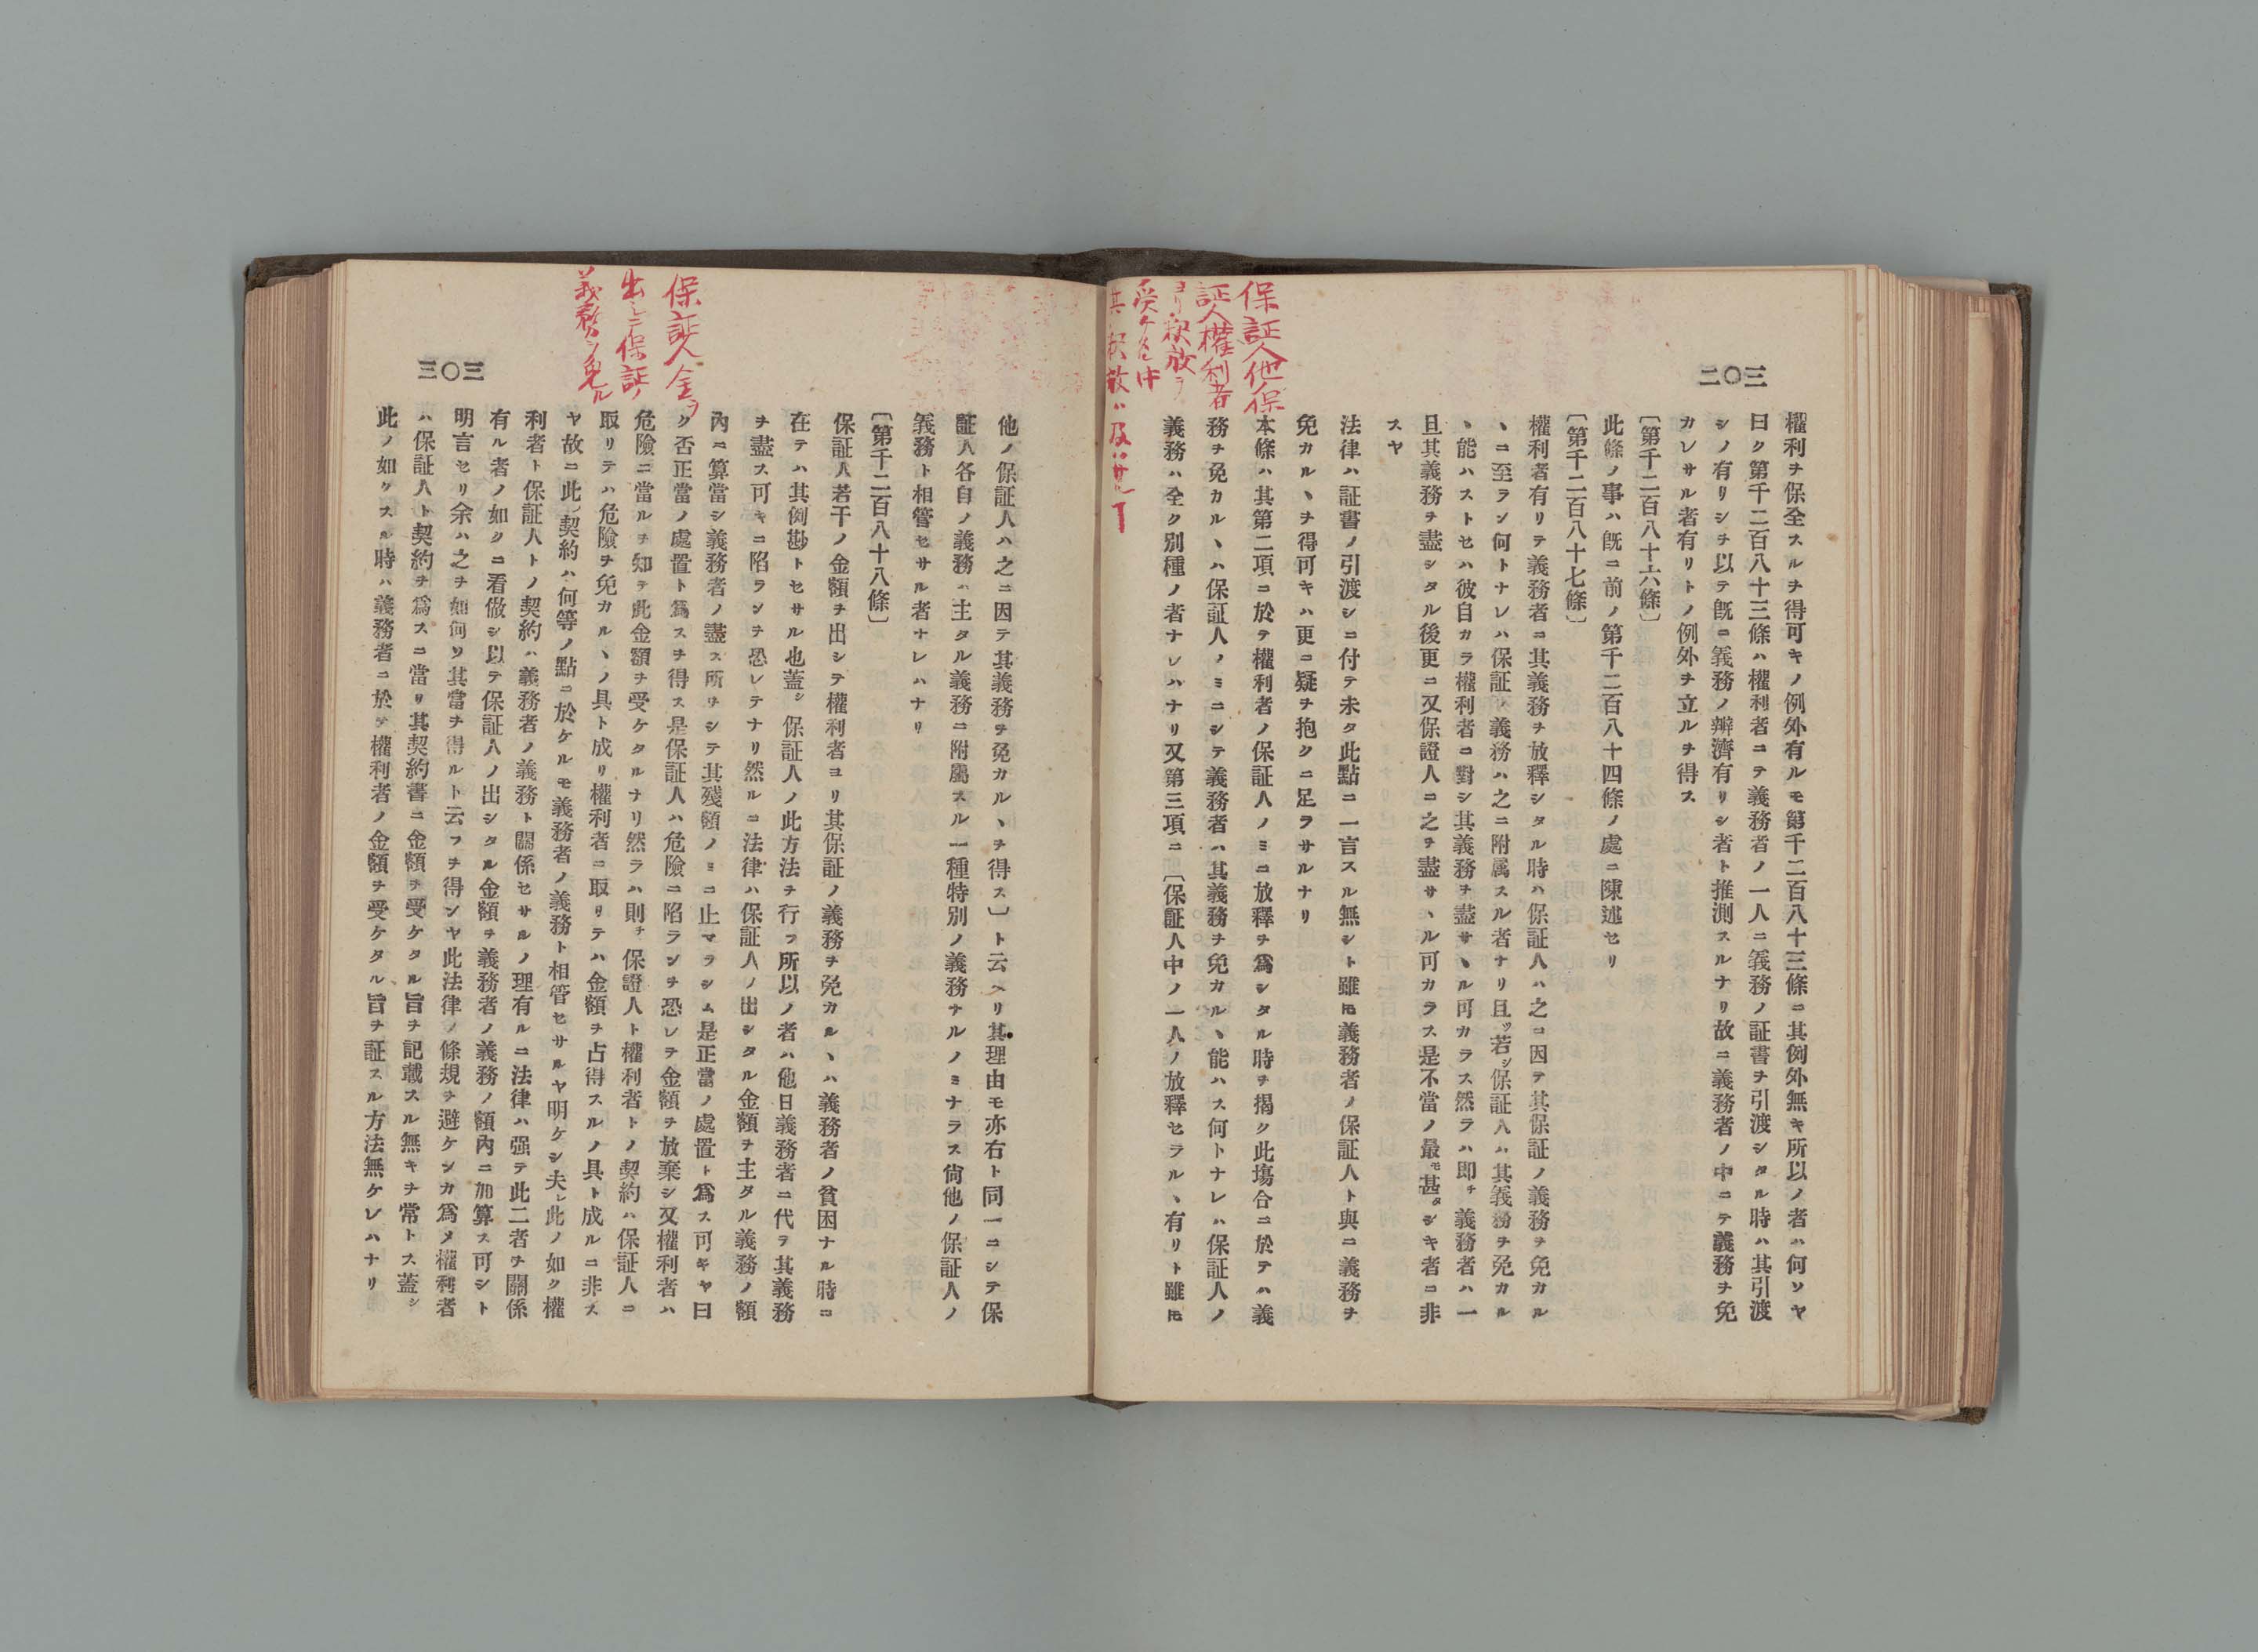 三〇二
權利ヲ保全スルヲ得可キノ例外有ルモ第千二百八十三條ニ其例外無キ所以ノ者ハ何ソヤ
曰ク第千二百八十三條ハ權利者ニテ義務者ノ一人ニ義務ノ証書ヲ引渡シタル時ハ其引渡
シノ有リシヲ以テ既ニ義務ノ辨濟有リシ者ト推測スルナリ故ニ義務者ノ中ニテ義務ヲ免
カレサル者有リトノ例外ヲ立ルヲ得ス
〔第千二百八十六條〕
此條ノ事ハ既ニ前ノ第千二百八十四條ノ處ニ陳述セリ
〔第千二百八十七條〕
權利者有リテ義務者ニ其義務ヲ放釋シタル時ハ保証人ハ之ニ因テ其保証ノ義務ヲ免カル
ヽニ至ラン何トナレハ保証ノ義務ハ之ニ附属スル者ナリ且ツ若シ保証人ハ其義務ヲ免カル
ヽ能ハストセハ彼自カラ權利者ニ對シ其義務ヲ盡サヽル可カラス然ラハ即チ義務者ハ一
旦其義務ヲ盡シタル後更ニ又保證人ニ之ヲ盡サヽル可カラス是不當ノ最モ甚タシキ者ニ非
スヤ
法律ハ証書ノ引渡シニ付テ未タ此點ニ一言スル無シト雖𪜈義務者ノ保証人ト與ニ義務ヲ
免カルヽヲ得可キハ更ニ疑ヲ抱クニ足ラサルナリ
本條ハ其第二項ニ於テ權利者ノ保証人ノミニ放釋ヲ爲シタル時ヲ揭ク此塲合ニ於テハ義
務ヲ免カルヽハ保証人ノミニシテ義務者ハ其義務ヲ免カルヽ能ハス何トナレハ保証人ノ
義務ハ全ク別種ノ者ナレハナリ又第三項ニ〔保証人中ノ一人ノ放釋セラルヽ有リト雖𪜈
保証人他ノ保
証人權利者
ヨリ釈放ヲ
受ケタル中
其釈放ハ及ハサル
三〇三
他ノ保証人ハ之ニ因テ其義務ヲ免カルヽヲ得ス〕ト云ヘリ其理由モ亦右ト同一ニシテ保
証人各自ノ義務ハ主タル義務ニ附屬スル一種特別ノ義務ナルノミナラス尙他ノ保証人ノ
義務ト相管セサル者ナレハナリ
〔第千二百八十八條〕
保証人若干ノ金額ヲ出シテ權利者ヨリ其保証ノ義務ヲ免カルヽハ義務者ノ貧困ナル時ニ
在テハ其例尠トセサル也蓋シ保証人ノ此方法ヲ行フ所以ノ者ハ他日義務者ニ代ヲ其義務
ヲ盡ス可キニ陷ランヲ恐レテナリ然ルニ法律ハ保証人ノ出シタル金額ヲ主タル義務ノ額
內ニ算當シ義務者ノ盡ス所ヲシテ其殘額ノミニ止マラシム是正當ノ處置ト爲ス可キヤ曰
ク否正當ノ處置ト爲スヲ得ス是保証人ハ危險ニ陷ランヲ恐レテ金額ヲ放棄シ又權利者ハ
危險ニ當ルヲ知テ此金額ヲ受ケタルナリ然ラハ則チ保證人ト權利者トノ契約ハ保証人ニ
取リテハ危險ヲ免カルヽノ具ト成リ權利者ニ取リテハ金額ヲ占得スルノ具ト成ルニ非ス
ヤ故ニ此契約ハ何等ノ點ニ於ケルモ義務者ノ義務ト相管セサルヤ明ケシ夫レ此ノ如ク權
利者ト保証人トノ契約ハ義務者ノ義務ト關係セサルノ理有ルニ法律ハ强テ此二者ヲ關係
有ル者ノ如クニ看做シ以テ保証人ノ出シタル金額ヲ義務者ノ義務ノ額內ニ加算ス可シト
明言セリ余ハ之ヲ如何ソ其當ヲ得ルト云フヲ得ンヤ此法律ノ條規ヲ避ケンカ爲メ權利者
ハ保証人ト契約ヲ爲スニ當リ其契約書ニ金額ヲ受ケタル旨ヲ記載スル無キヲ常トス蓋シ
此ノ如クスル時ハ義務者ニ於テ權利者ノ金額ヲ受ケタル旨ヲ証スル方法無ケレハナリ
保証人金ヲ
出シテ保証ノ
義務ヲ免ル